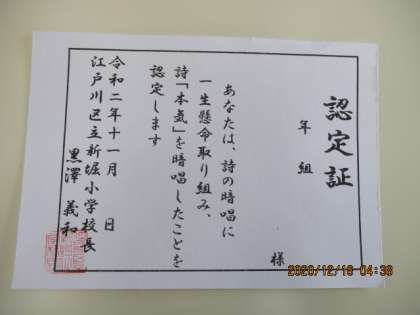 認定証
年 組
様
あなたは、詩の暗唱に
一生懸命取り組み、
詩「本気」を暗唱したことを
認定します
令和二年十一月 日
江戸川区立新堀小学校長
黒澤 義和
2020/12/18 04:38